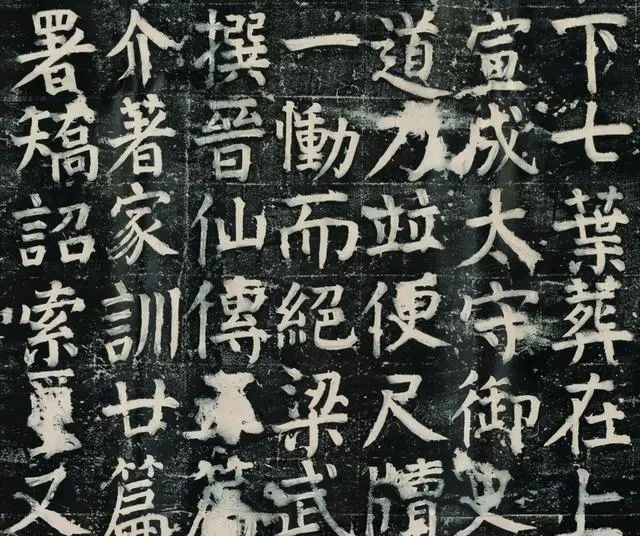 下七葉葬在上
宣成太守御史
道力並便尺牘
一慟而絕梁武
撰晉仙傳五篇
介著家訓廿篇
署矯詔索又